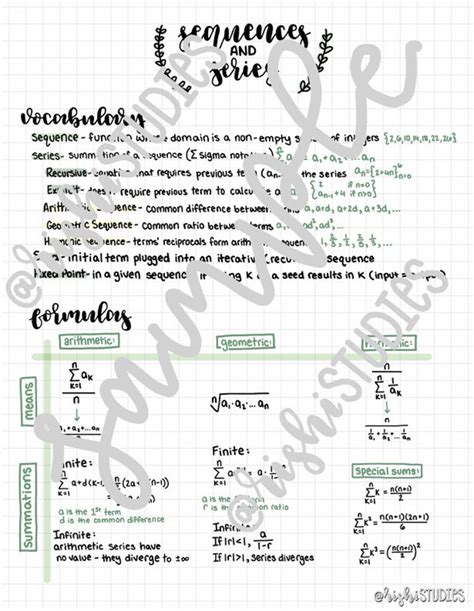 sequences
AND
series
vocabulary
Sequence - function whose domain is a non-empty of integers {2,6,10,14,18,22,26}
Series - summation of a sequence (Σ sigma notation) = a₁+a₂+...aₙ
Recursive - that requires previous term the series aₙ=
Explicit - does require previous term to calculate { 2 if n=0 aₙ₋₁+4 if n>0
Arithmetic Sequence - common difference between a, a+d, a+2d, a+3d,...
Geometric Sequence - common ratio between terms
Harmonic Sequence - terms' reciprocals form
- initial term plugged into an sequence
Fixed Point - in a given sequence K as a seed results in K (input = output)
formulas
arithmetic:
geometric:
harmonic:
means
Σ aₖ
K=1
n
a₁+a₂+...aₙ
n
ⁿ√a₁·a₂...aₙ
n
Σ 1/aₖ
K=1
n
1/a₁+1/a₂+...1/aₙ
summations
Finite:
Σ a+d(k-1) = n/2(2a+
a is the 1st term
d is the common difference
Infinite:
arithmetic series have
no value - they diverge to ±∞
Finite:
a is the
r is the common ratio
Infinite:
If |r|<1, a/(1-r)
If |r|>1, series diverges
special sums:
Σ K = n(n+1)/2
Σ K² = n(n+1)(2n+1)/6
Σ K³ = (n(n+1)/2)²
sample
@rishiSTUDIES
@rishiSTUDIES
@rishiSTUDIES